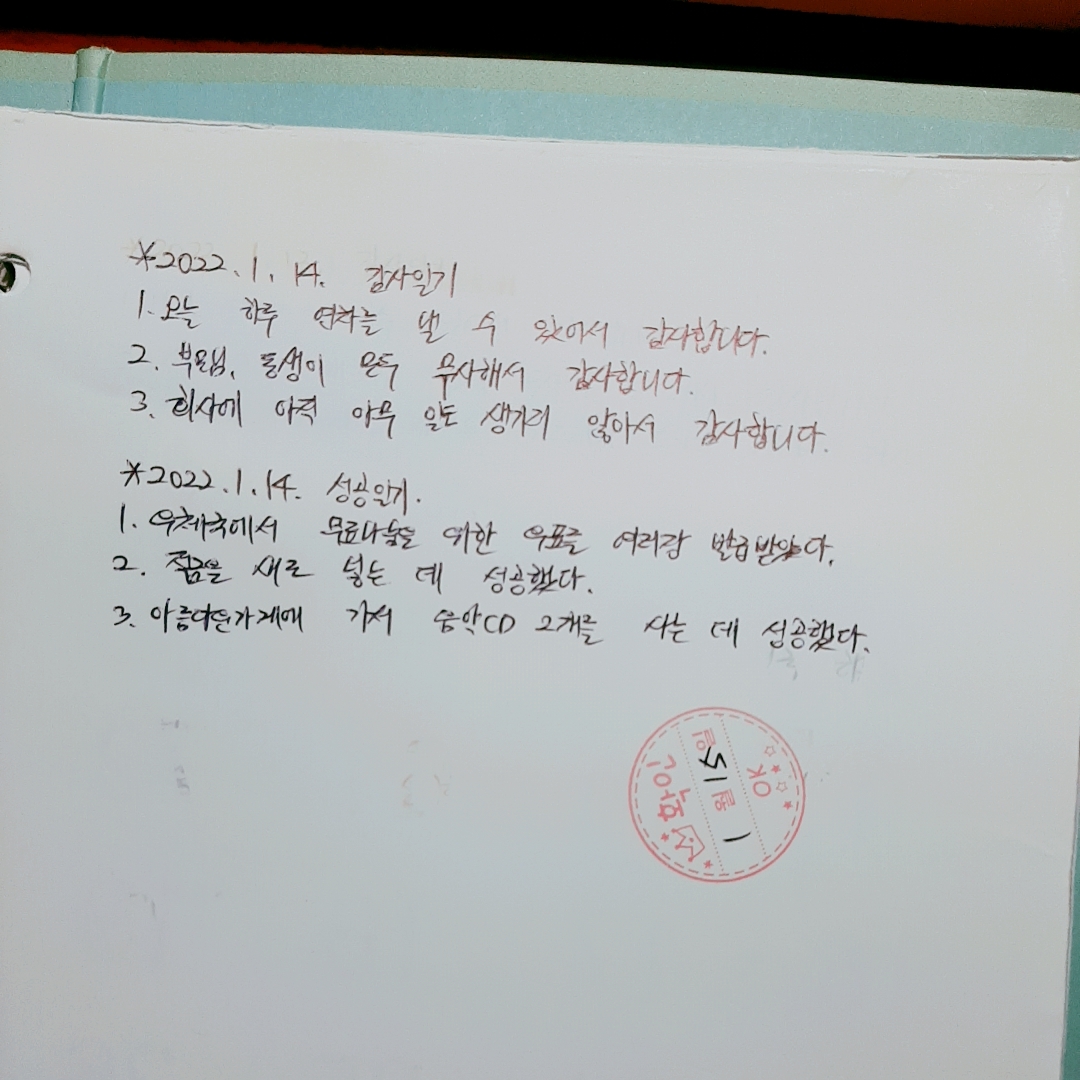 *2022.1.14. 감사일기
1. 오늘 하루 연차를 낼 수 있어서 감사합니다.
2. 부모님, 동생이 모두 무사해서 감사합니다.
3. 회사에 아직 아무 일도 생기지 않아서 감사합니다.
*2022.1.14. 성공일기.
1. 우체국에서 무료나눔을 위한 우표를 여러장 발급받았다.
2. 적금을 새로 넣는 데 성공했다.
3. 아름다운가게에 가서 음악CD 2개를 사는 데 성공했다.
OK
1월 15일